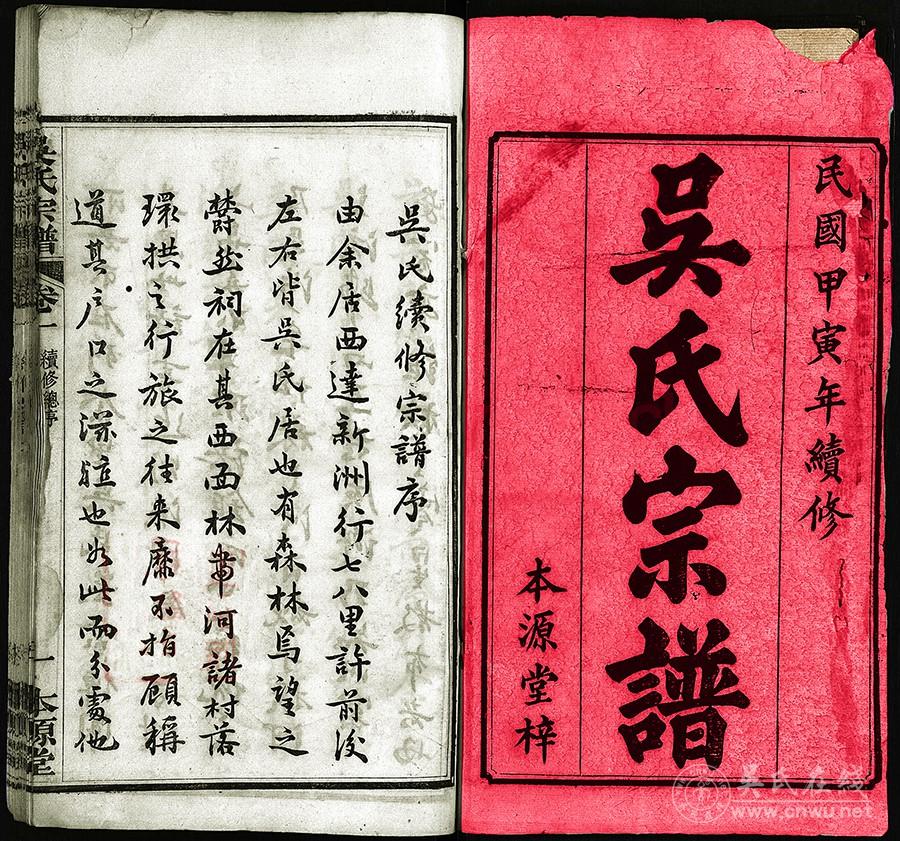 民國甲寅年續修
吳氏宗譜
本源堂梓
吳氏續修宗譜序
由余居西達新洲行七八里許前後
左右皆吳氏居也有森林焉望之
欝然祠在其西面林帶河諸村落
環拱之行旅之往來靡不指顧稱
道其户口之滋也如此而分處他
吳氏宗譜 卷一 續修總序 一 本源堂
吴氏在线
www.cnwu.net